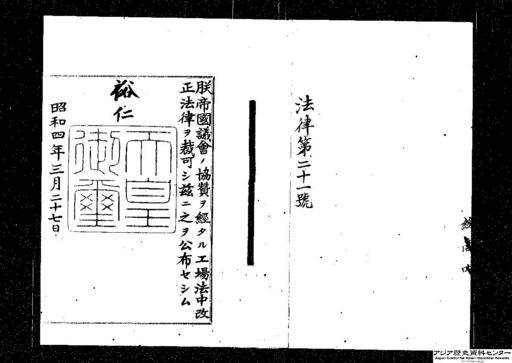 法律第二十一號
朕帝國議會ノ協贊ヲ經タル工場法中改
正法律ヲ裁可シ玆ニ之ヲ公布セシム
裕仁
天皇
御璽
昭和四年三月二十七日
アジア歴史資料センター
Japan Center for Asian Historical Records